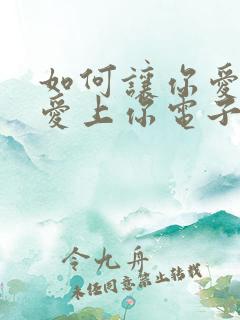 如何讓你愛
愛上你電子
令九舟
未經同意禁止轉載